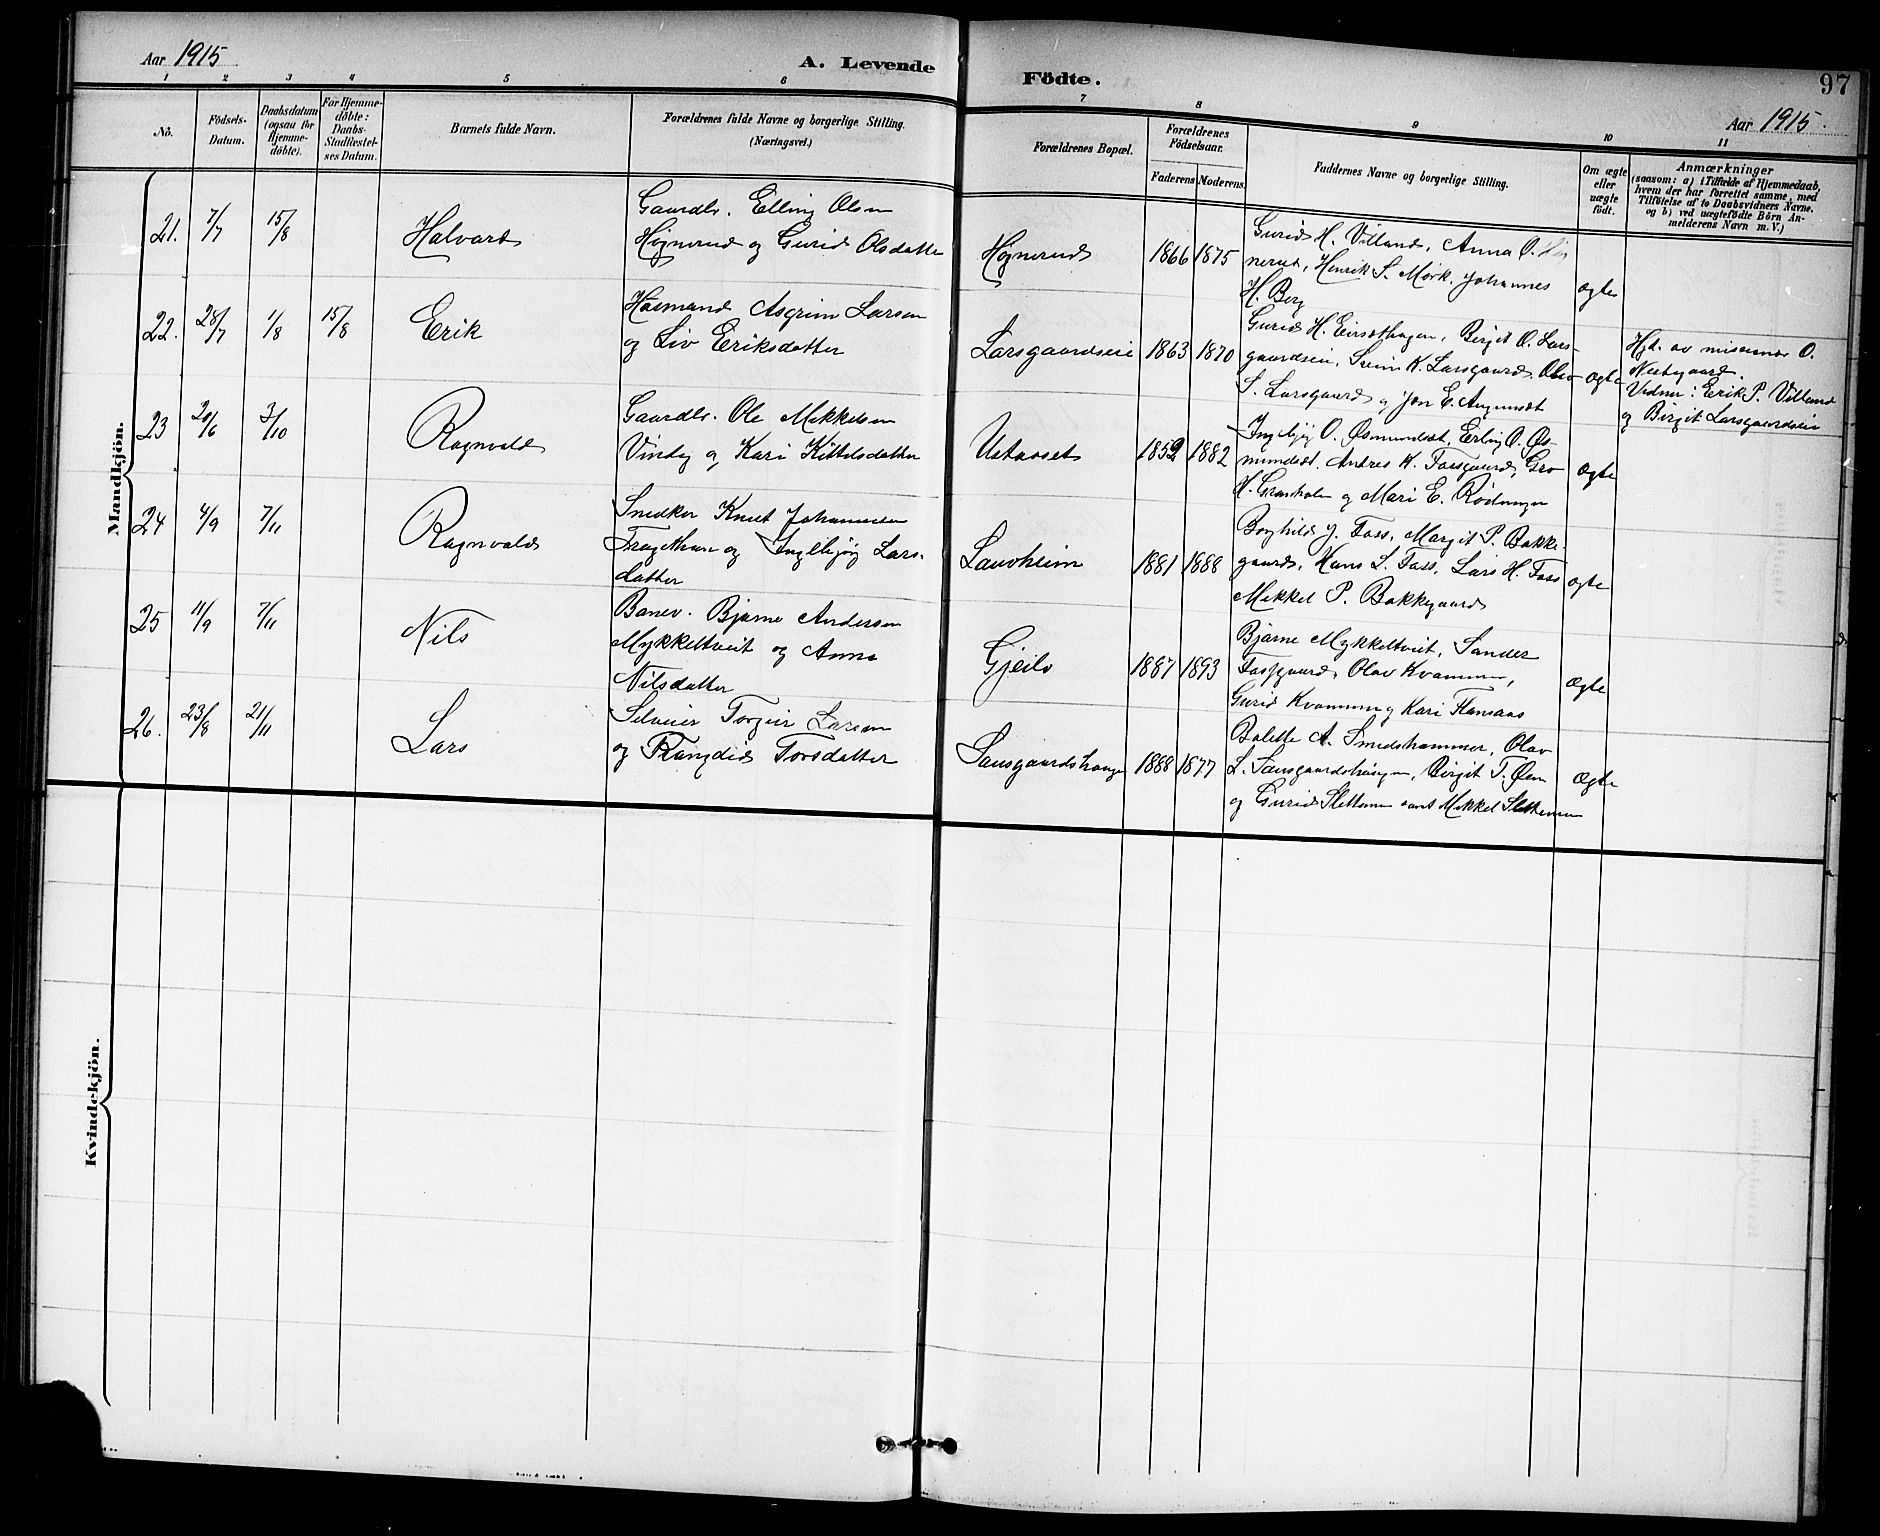 Aar 1915
A. Levende
Födte.
97
Aar 1915.
1 2 3 4 5 6 7 8 9 10 11
No.
Födsels-
Datum.
Daabsdatum
(ogsaa for
Hjemme-
döbte).
For Hjemme-
döbte:
Daabs-
Stadfæstel-
ses Datum.
Barnets fulde Navn.
Forældrenes fulde Navne og borgerlige Stilling.
(Næringsvei.)
Forældrenes Bopæl.
Forældrenes
Födselsaar.
Faderens Moderens
Faddernes Navne og borgerlige Stilling.
Om ægte
eller
uægte
født.
Anmærkninger
(saasom: a) i Tilfælde af Hjemmedaab,
hvem der har forrettet samme, med
Tilføielse af to Daabsvidners Navne,
og b) ved uægtefödte Börn An-
melderens Navn m. V.)
Mandkjön.
21. 7/7 15/8 Halvard
Gaardbr. Elling Olsen
Høgnerud og Gurid Olsdatter
Høgnerud 1866 1875
Gurid H. Villand, Anna O. Høg
nerud, Henrik S. Mørk, Johannes
H. Berg
ægte
22. 28/7 1/8 15/8 Erik
Husmand Asgrim Larsen
og Liv Eriksdatter
Larsgaardseie 1863 1870
Gurid H. Eirsethagen, Birgit O. Lars-
gaardseie, Svein K. Larsgaard, Olav
S. Larsgaard og Jon E.
ægte
Hjd. av misionær O.
Nestegaard.
Vidner: Erik P. Villand
og Birgit Larsgaardseie
23 20/6 3/10 Ragnvald
Gaardbr. Ole Mikkelsen
Vindeg og Kari Kittelsdatter
Ustaoset 1852 1882
Ingebjøg O. Øsmundset, Erling O. Øs-
mundset, Andres K. Tofsgaard, Gro
H. Granholen og Mari E. Rødungen
ægte
24 4/9 7/11 Ragnvald
Snedker Knut Johannesen
Trogethun og Ingebjøg Lars-
datter
Lauvheim 1881 1888
Borghild J. Foss, Margit P. Bakke-
gaard, Hans L. Foss, Lars H. Foss
Mekkel P. Bakkegaard
ægte
25 11/9 7/11 Nils
Banev. Bjarne Andersen
Mykkeltveit og Anna
Nilsdatter
Gjeilo 1887 1893
Bjarne Mykkeltveit, Sander
Tofsgaard, Olav Kvammen,
Gurid Kvammen og Kari Flansaas
Ægte
26. 23/8 21/11 Lars
Selveier Torgeir Larsen
og Rangdid Torsdatter
Sausgaardshaugen 1888 1877
Bolette A. Smedshammer, Olav
L. Sausgaardshaugen, Birgit T. Øen
og Gurid Slettemo samt Mekkel Slettemo
Ægte
Kvindekjön.